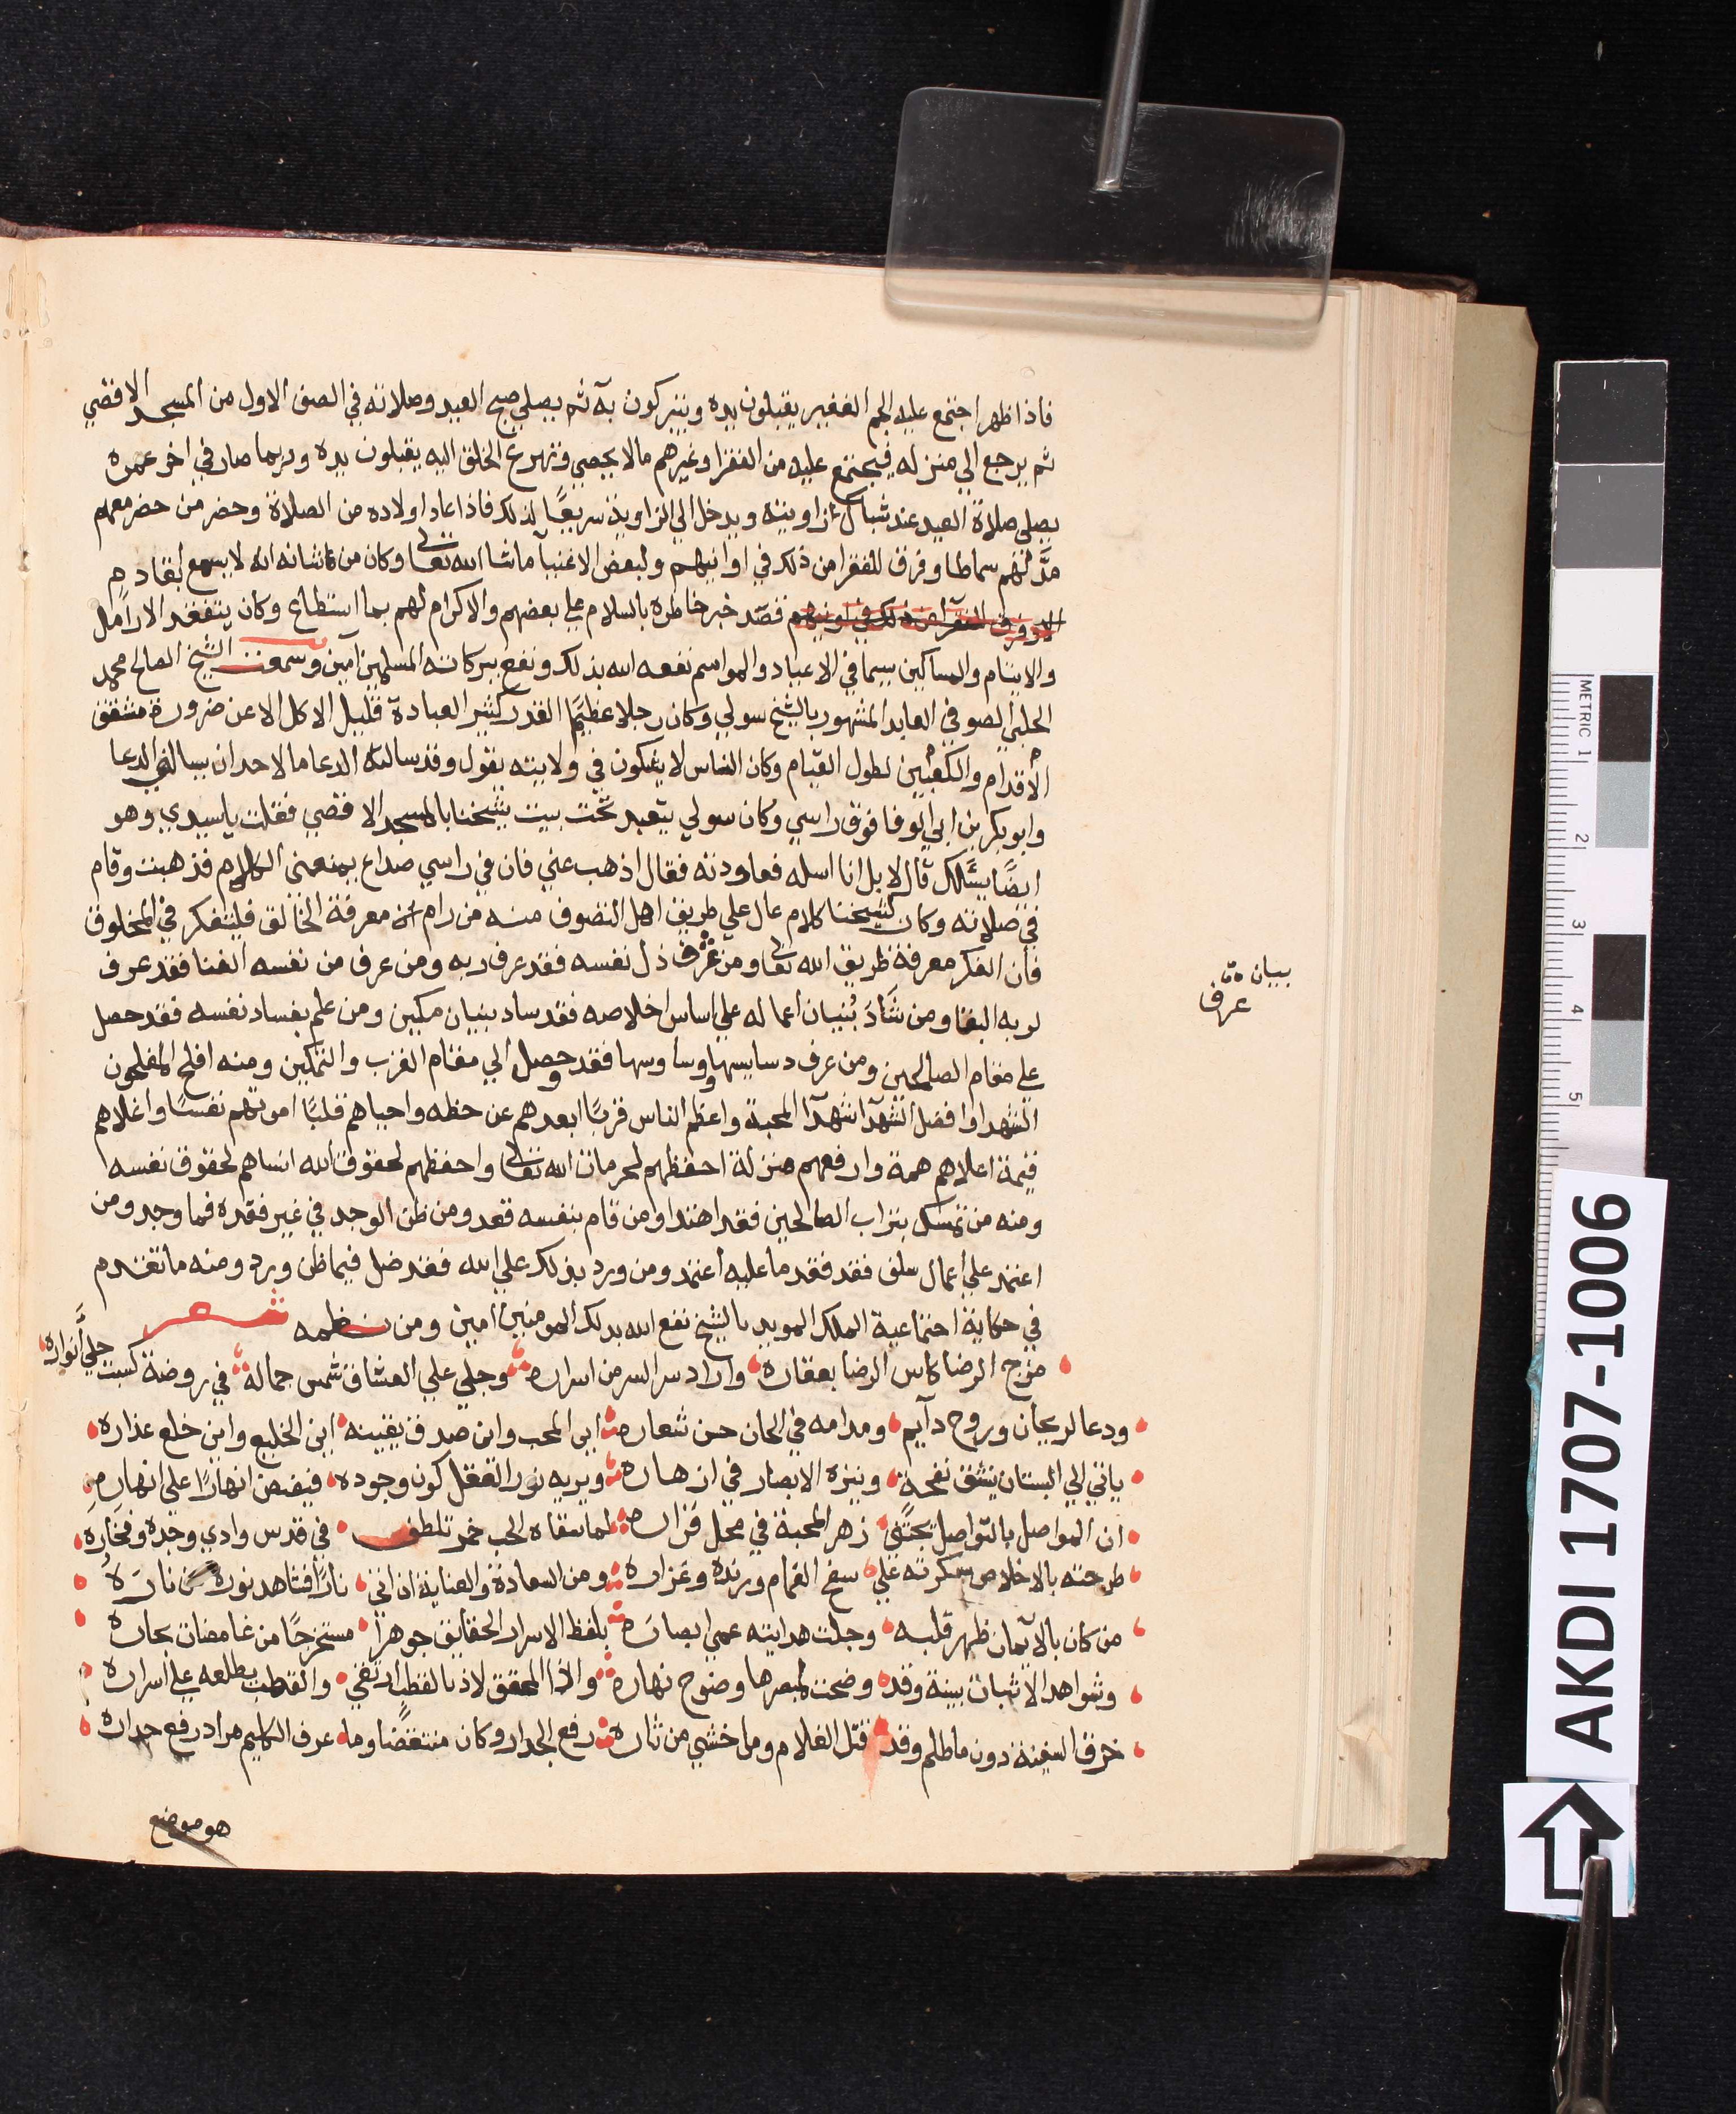 فاذا ظهر اجتمع عليه الجم الغفير يقبلون يده ويتبركون به ثم يصلي صبح العيد وصلاته في الصف الاول من المسجد الاقصي
ثم يرجع الي منزله فيجتمع عليه من الفقرا وغيرهم ما لا يحصي وتهرع الخلق اليه يقبلون يده وربما صار في اخر عمره
يصلي صلاة العيد عند شباك زاويته ويدخل الي الزاوية سريعًا لذلك فاذا عاد اولاده من الصلاة وحضر من حضر معهم
مدَّ لهم سماطا وفرق للفقرا من ذلك في اوانيهم ولبعض الاغنيآ ما شا الله تعالى وكان من شانه انه لا يسمع بقادم
الا وفرق للفقرا من ذلك في اونيهم قصد خبر خاطره بالسلام علي بعضهم والاكرام لهم بما استطاع وكان يتفقد الارامل
والايتام والمساكين سيما في الاعياد والمواسم نفعه الله بذلك ونفع ببركاته المسلمين آمين وسمعت الشيخ الصالح محمد
الحلبي الصوفي العابد المشهور بالشيخ سولي وكان رجلا عظيمًا القدر كثير العبادة قليل الاكل الا عن ضرورة متشقق
الاقدام والكعبين لطول القيام وكان الناس لا يشكون في ولايته يقول وقد سالته الدعا ما لاحد ان يسالني الدعا
وابو بكر بن ابي الوفا فوق راسي وكان سولي يتعبد تحت بيت شيخنا بالمسجد الاقصي فقلت يا سيدي وهو
ايضًا يسئلك قال لا بل انا اسله فعاودته فقال اذهب عني فان في راسي صداع يمنعني الكلام فذهبت وقام
في صلاته وكان لشيخنا كلام عال علي طريق اهل التصوف منه من رام معرفة الخالق فليتفكر في المخلوق
فان الفكر معرفة طريق الله تعالى ومن عرف ذل نفسه فقد عرف ربه ومن عرف من نفسه الفنا فقد عرف
لربه البقا ومن شَادَ بُنيان اعماله علي اساس اخلاصه فقد ساد بنيان مكين ومن علم بفساد نفسه فقد حصل
علي مقام الصالحين ومن عرف دسايسها ووساوسها فقد وصل الي مقام القرب والتمكين ومنه افلح المفلحون
الشهدا وافضل الشهدا شهدآ المحبة واعظم الناس قربًا ابعدهم عن حظه واحياهم قلبًا اموتهم نفسًا واغلاهم
قيمة اعلاهم همة وارفعهم منزلة احفظهم لحرمات الله تعالى واحفظهم لحقوق الله انساهم لحقوق نفسه
ومنه من تمسك بتراب الصالحين فقد اهتدا ومن قام بنفسه قعد ومن ظن الوجد في غير فقده فما وجد ومن
اعتمد علي اعمال سلف فقد فقد ما عليه اعتمد ومن ورد بذلك علي الله فقد ضل فيما ظن ورد ومنه ما تقدم
في حكاية اجتماعية الملك المويد بالشيخ نفع الله بدلك المومنين امين ومن نظمه شعر
مزج الرضا كاس الرضا بعقاره واراد سر السر من اسراره وجلي علي العشاق شمس جماله في روضة كسيت حليَّ انواره
ودعا لريحان وروح دآيم ومدامه في الحان حسن شعاره اين المحب واين صدق يقينه اين الخليع واين خلع عذاره
ياتي الي البستان ينشق نفحة وينزه الابصار في ازهاره ويريه نور العقل كون وجوده فيفيض انهارًا علي انهاره
ان المواصل بالتواصل يجتني زهر المحبة في محل قراره لما سقاه الحب خمر تلطف في قدس وادي وجده وفخاره
طرحته بالاخلاص سكرته علي سفح الغمام ورنده وعراره ومن السعادة والعناية ان اتي نارًا فشاهد نوره من ناره
من كان بالايمان طهر قلبه وجلت هدايته عمي ابصاره بلفظ الاسرار الحقايق جوهرا مستخرجًا من غامضات بحاره
وشواهد الاثبات بينة وقد وضحت لمبصرها وضوح نهاره واذا المحقق لاذ بالقطب ارتقي والقطب يطلعه علي اسراره
خرق السفينة دون ما ظلم وقد قتل الغلام وما خشي من ثاره رفع الجدار وكان منتقضًا وما عرف الكليم مراد رفع جداره
بيان
عرف
هو موضع
AKDI 1707-1006
METRIC 1 2 3 4 5